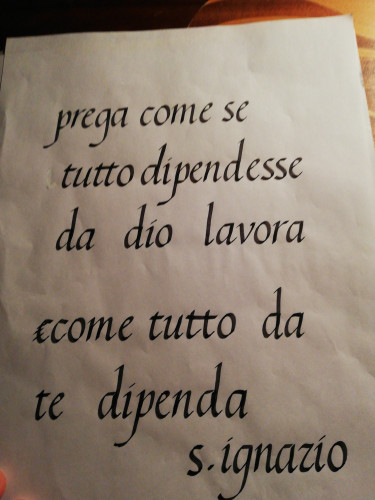 prega come se
tutto dipendesse
da dio lavora
come tutto da
te dipenda
s. ignazio